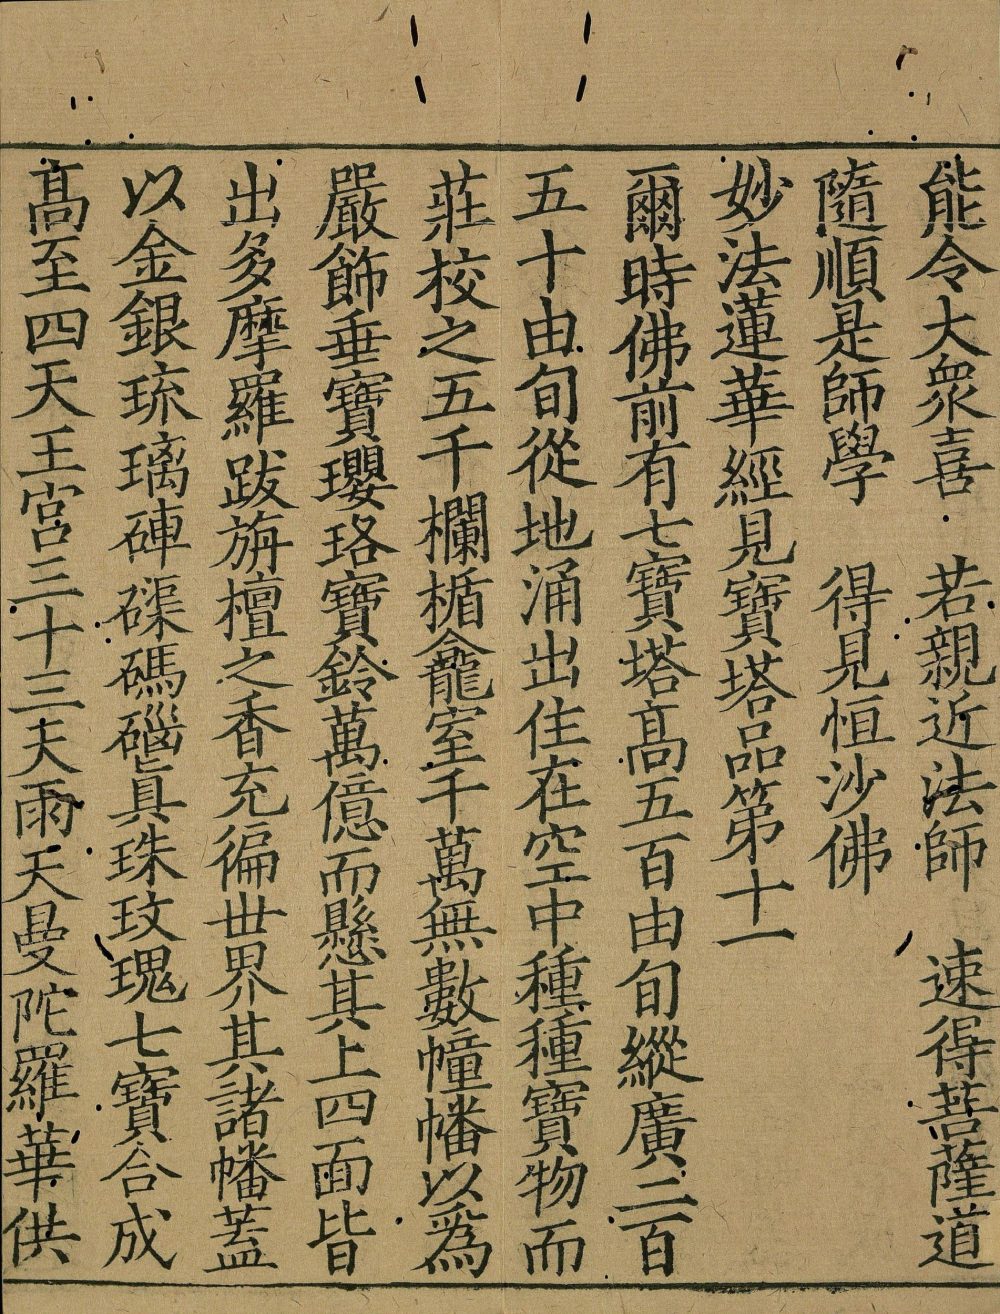 能令大衆喜　若親近法師　速得菩薩道
隨順是師學　得見恒沙佛
妙法蓮華經見寶塔品第十一
爾時佛前有七寶塔髙五百由旬縱廣二百
五十由旬從地涌出住在空中種種寶物而
莊校之五千欄楯龕室千萬無數幢幡以爲
嚴飾垂寶瓔珞寶鈴萬億而懸其上四面皆
出多摩羅跋旃檀之香充徧世界其諸幡蓋
以金銀琉璃硨磲碼碯真珠玫瑰七寶合成
髙至四天王宮三十三天雨天曼陀羅華供